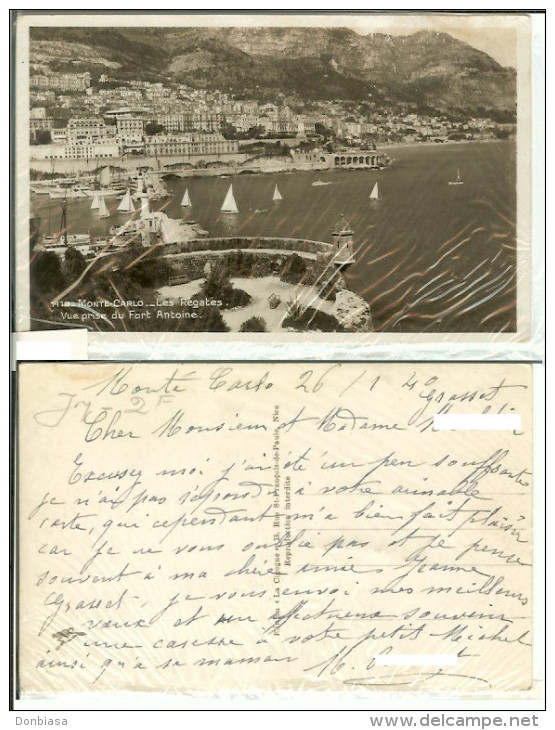 718 - MONTE-CARLO. _ Les Régates
Vue prise du Fort Antoine.
Monté Carlo 26/1 40
Grasset
2F
Cher Monsieur et Madame
Excusez moi j'ai été un peu souffrante
je n'ai pas répondu à votre aimable
carte, qui cependant m'a bien fait plaisir
car je ne vous oublie pas et je pense
souvent à ma chère amie Jeanne
Grasset je vous envoi mes meilleurs
vœux et un affectueux souvenir
une caresse à votre petit Michel
ainsi qu'a sa maman M.
« La Cigogne » 18, Rue St-François-de-Paule, Nice
Reproduction interdite
Donbiasa
www.delcampe.net